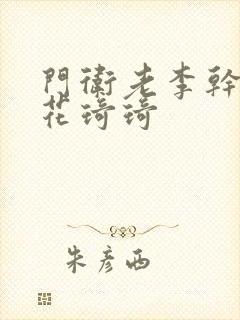 門衛老李幹
花琦琦
朱彥西